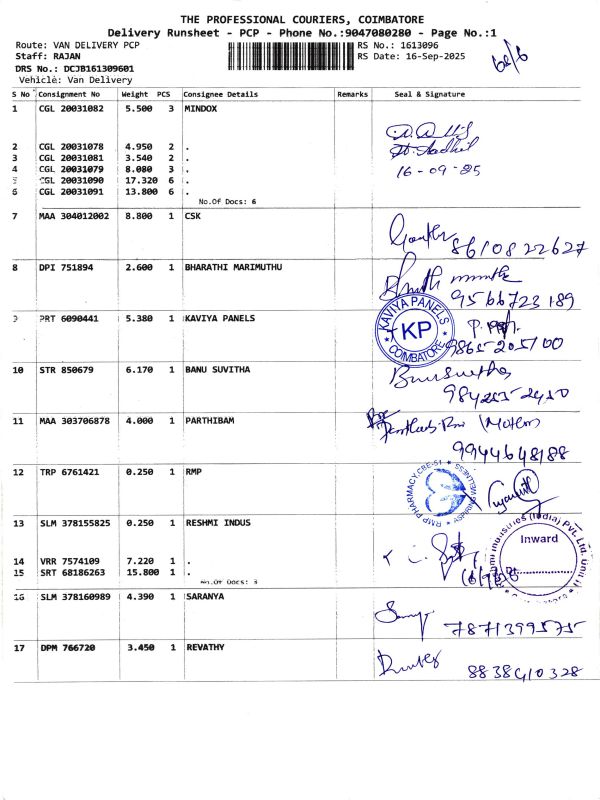 THE PROFESSIONAL COURIERS, COIMBATORE
Delivery Runsheet - PCP - Phone No.:9047080280 - Page No.:1
Route: VAN DELIVERY PCP RS No.: 1613096
Staff: RAJAN RS Date: 16-Sep-2025
DRS No.: DCJB161309601
Vehicle: Van Delivery
S No Consignment No Weight PCS Consignee Details Remarks Seal & Signature
1 CGL 20031082 5.500 3 MINDOX
2 CGL 20031078 4.950 2 .
3 CGL 20031081 3.540 2 .
4 CGL 20031079 8.080 3 .
5 CGL 20031090 17.320 6 .
6 CGL 20031091 13.800 6 .
16-09-25
No.Of Docs: 6
7 MAA 304012002 8.800 1 CSK
8610822627
8 DPI 751894 2.600 1 BHARATHI MARIMUTHU
9566723189
9 PRT 6090441 5.380 1 KAVIYA PANELS
KAVIYA PANELS
KP
COIMBATORE
9865205100
10 STR 850679 6.170 1 BANU SUVITHA
11 MAA 303706878 4.000 1 PARTHIBAM
9944648188
12 TRP 6761421 0.250 1 RMP
RMP PHARMACY, CBE-51
13 SLM 378155825 0.250 1 RESHMI INDUS
Industries (India) Pvt. Ltd. Unit
Inward
14 VRR 7574109 7.220 1 .
15 SRT 68186263 15.800 1 .
No.Of Docs: 3
16 SLM 378160989 4.390 1 SARANYA
7871399575
17 DPM 766720 3.450 1 REVATHY
8838410328